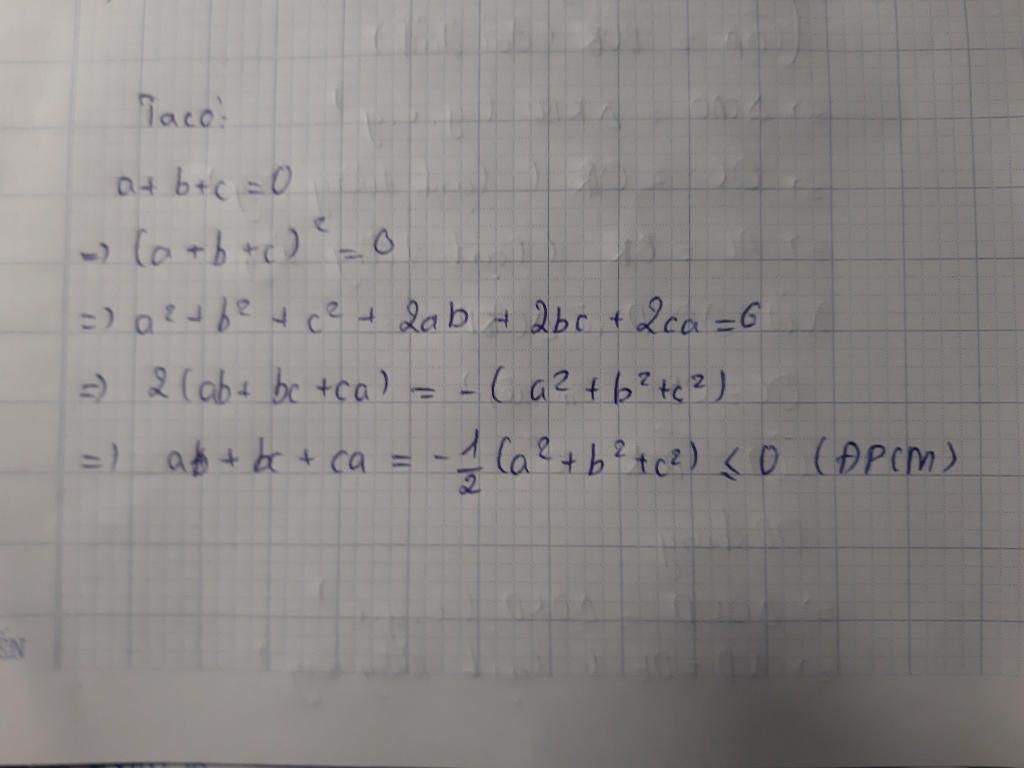 Ta có:
a + b + c = 0
=> (a + b + c)² = 0
=> a² + b² + c² + 2ab + 2bc + 2ca = 0
=> 2(ab + bc + ca) = - (a² + b² + c²)
=> ab + bc + ca = - 1/2 (a² + b² + c²) ≤ 0 (ĐPCM)